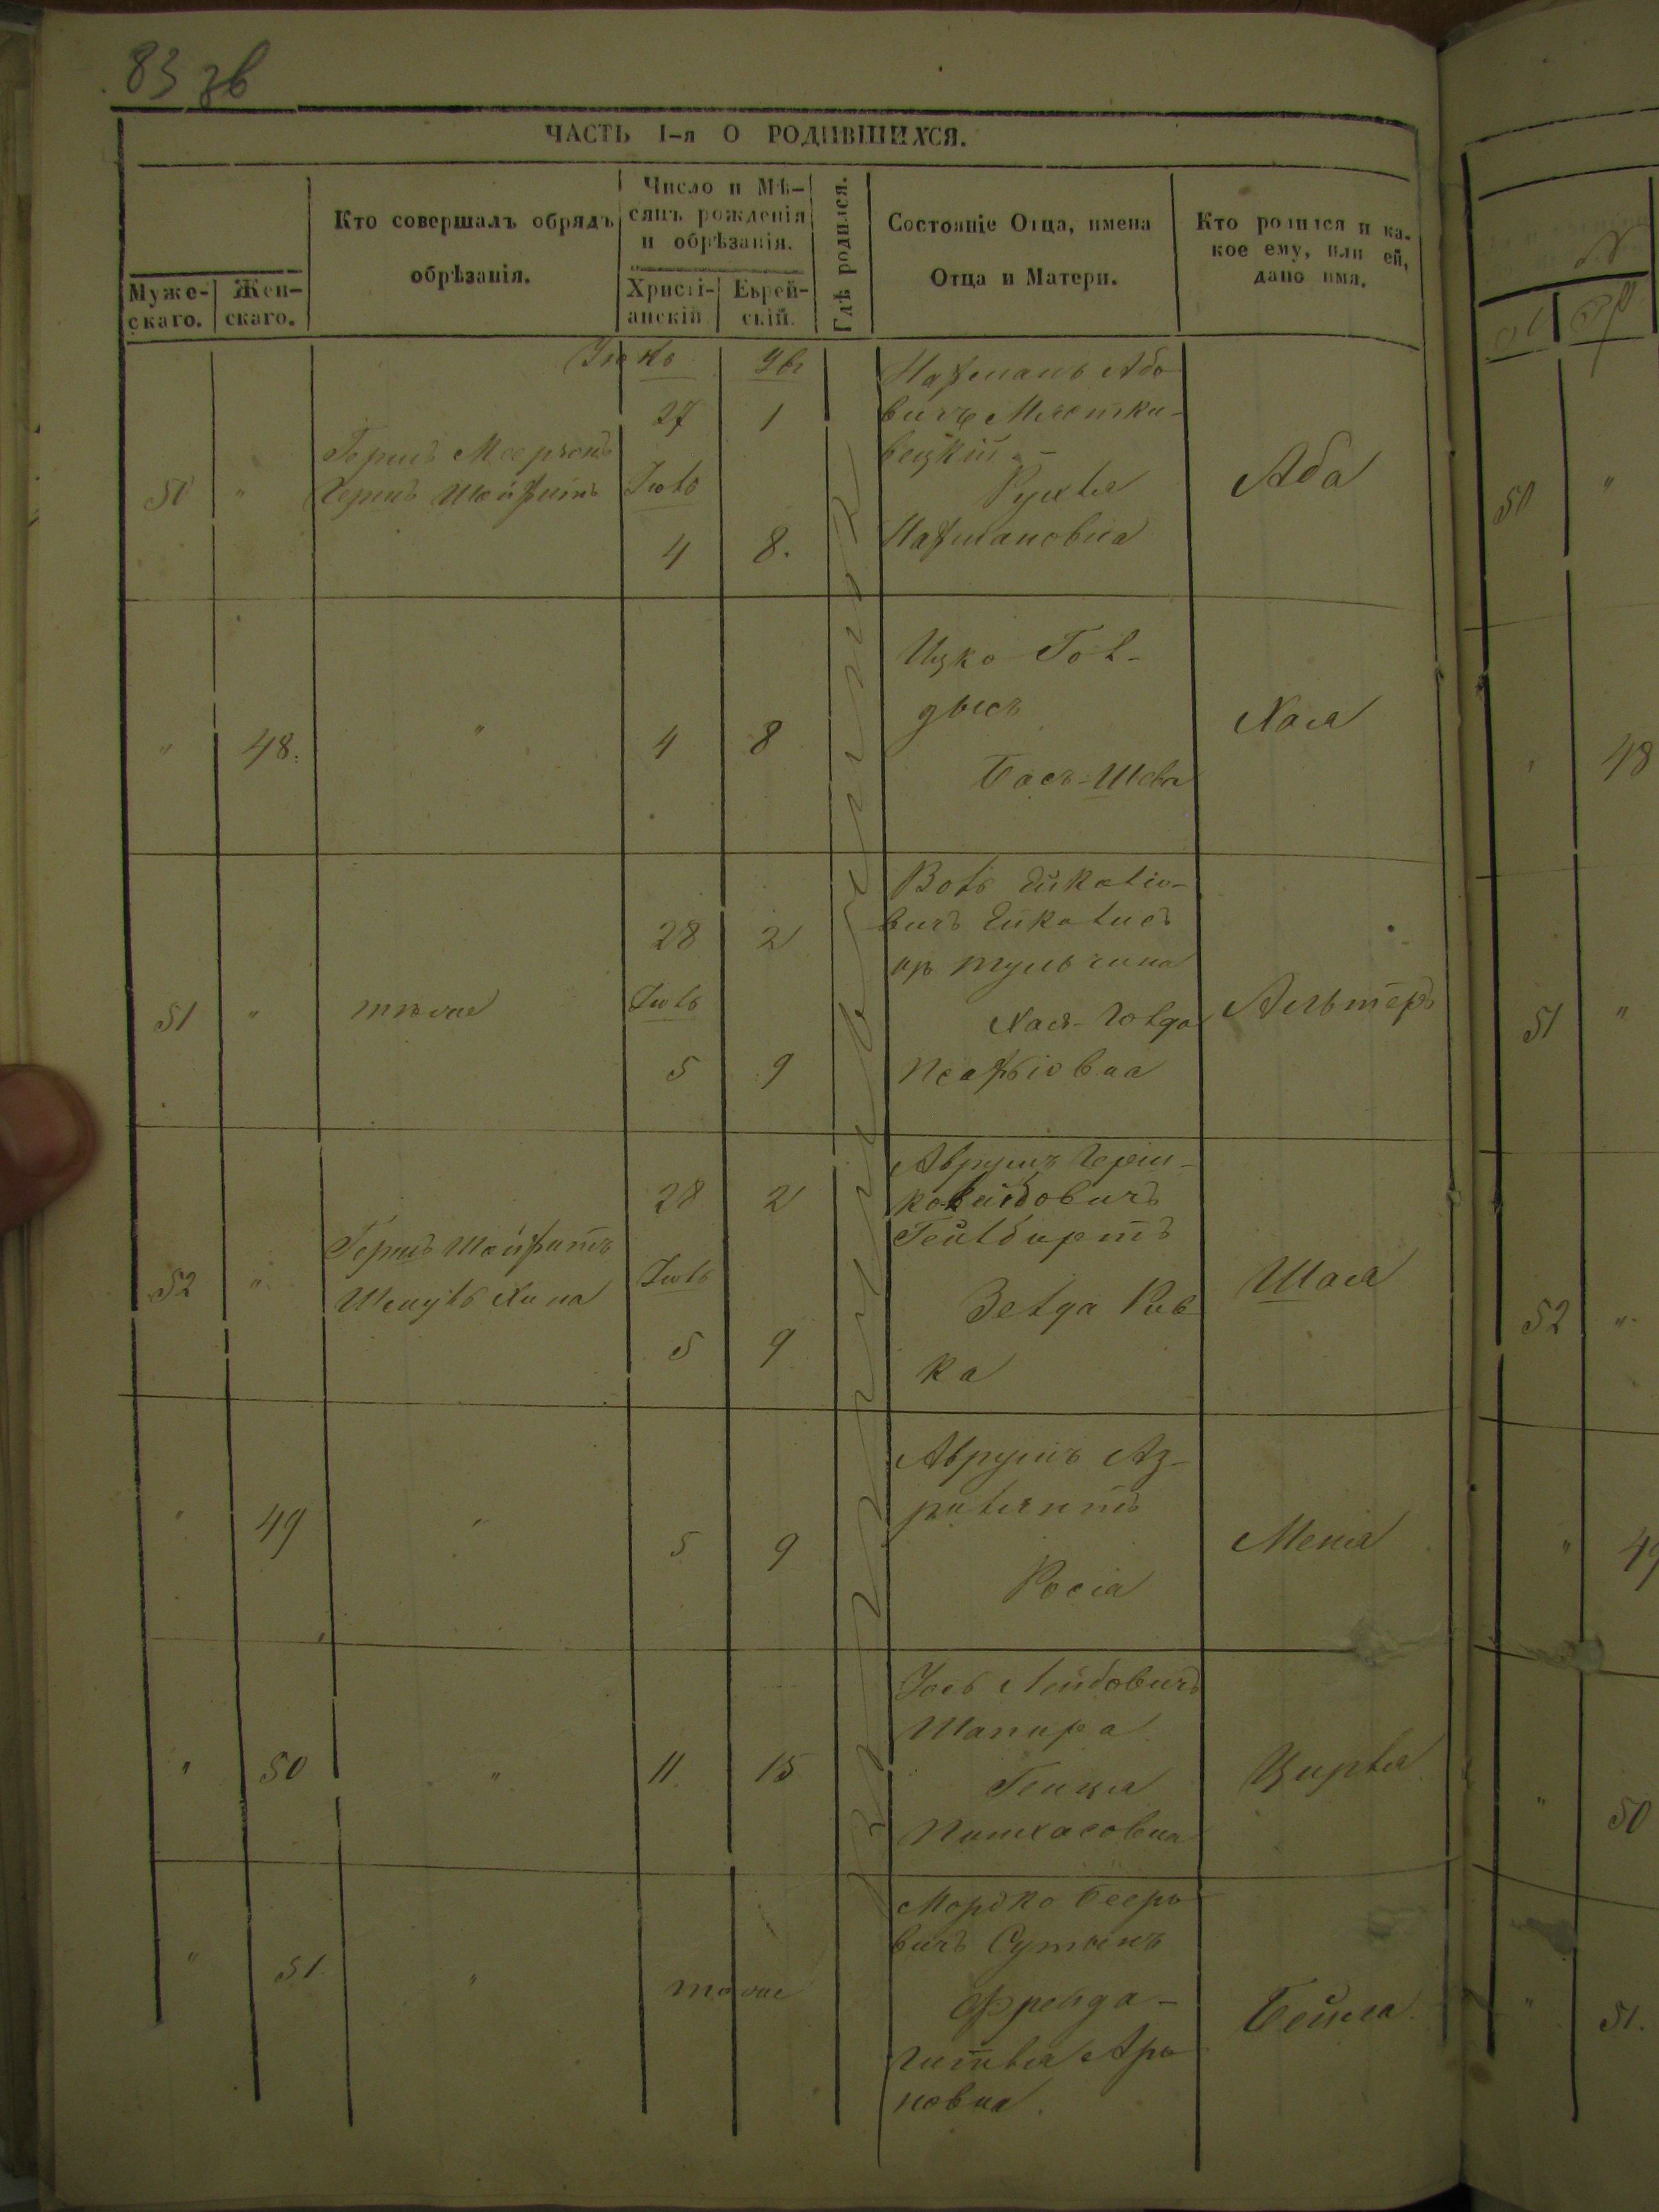 83 зв
ЧАСТЬ I-я О РОДИВШИХСЯ.
Муже-
скаго.
Жен-
скаго.
Кто совершалъ обрядъ
обрѣзанія.
Число и Мѣ-
сяцъ рожденія
и обрѣзанія.
Христі-
анскій
Еврей-
скій.
Гдѣ родился.
Состояніе Отца, имена
Отца и Матери.
Кто родился и ка-
кое ему, или ей,
дано имя.
50 "
Герш Меерзонъ
Герш Шойхитъ
27 1
Іюль
4 8.
Нахманъ Або
вичъ
Рухля
Нахмановна
Аба
" 48. "
4 8
Ицко Гол-
дысъ
Бась-Шева
Хая
51 "
тоже
28 2
Іюль
5 9
Волъ
вичъ
изъ Тульчина
Хая-Голда
Альтеръ
52 "
Гершъ Шойхитъ
Шмуль Хина
28 2
Іюль
5 9
Аврумъ Герш-
ковичъ
Зелда Рив
ка
Шая
" 49 "
5 9
Аврумъ Аз-
рилянтъ
Росіа
Меня
" 50 "
11 15
Іось Лейбовичъ
Шапира
Генця
Пинхасовна
Цирля
" 51. "
тоже
Мордко Бееро
вичъ
Фрейда-
Гитля Аро
новна.
Бейла.
50 "
48
51 "
52 "
" 49
" 50
" 51.